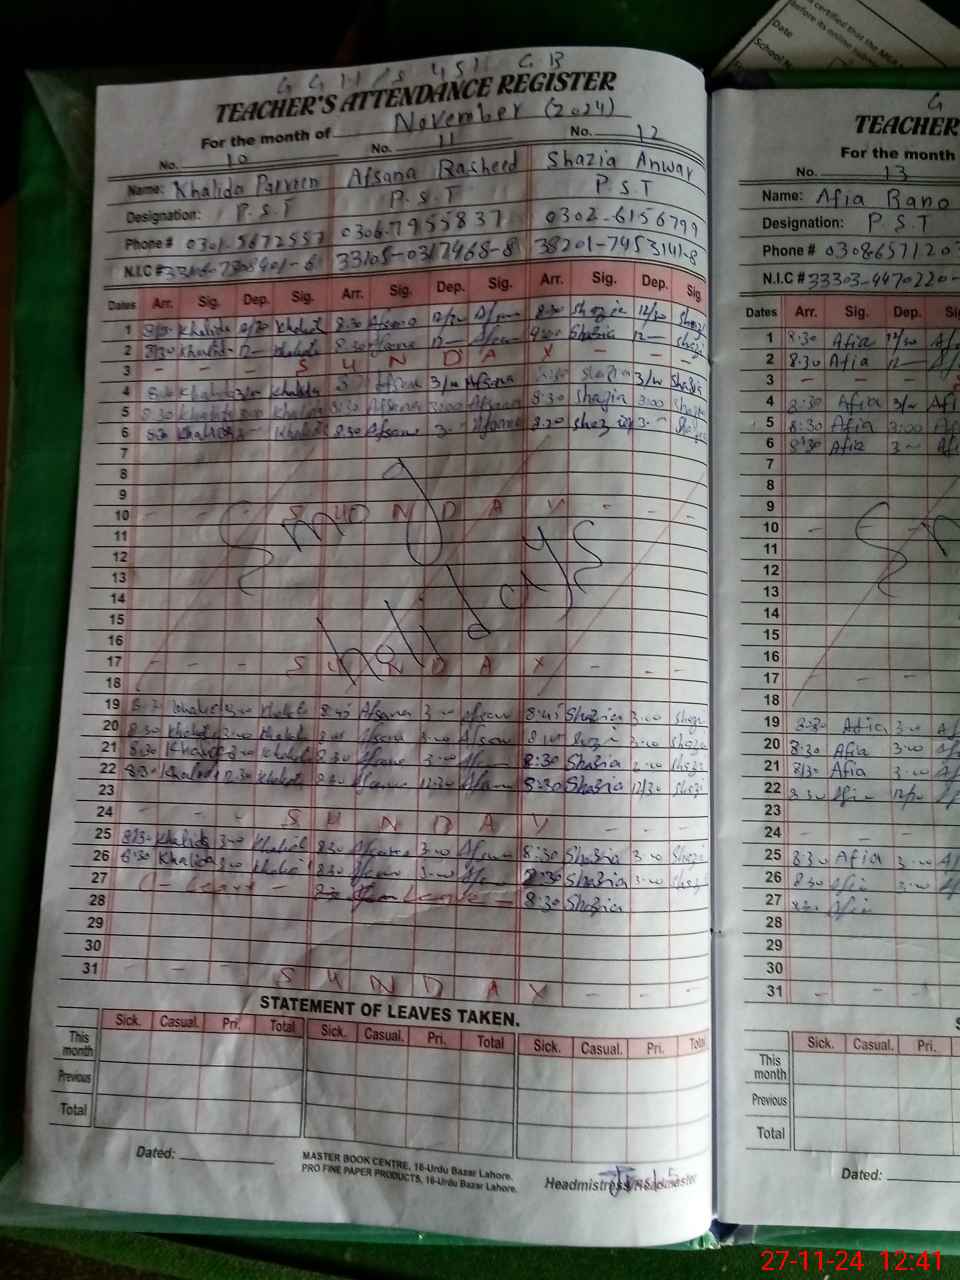 G G H/S 451 G B
TEACHER'S ATTENDANCE REGISTER
For the month of November (2024)
No. 10 No. 11 No. 12
Name: Khalida Parveen Afsana Rasheed Shazia Anwar
Designation: P.S.T P.S.T P.S.T
Phone # 0301-5672557 0306-7955837 0302-6156799
N.I.C # 33105-0317468-8 38201-7453141-8
Dates Arr. Sig. Dep. Sig. Arr. Sig. Dep. Sig. Arr. Sig. Dep. Sig.
1 8/30 Khalida 12/30 Khalida 8:30 Afsana 12/30 Afsana 8:30 Shazia 12/30
2 8/30 Khalida 12 Khalida 8:30 12 Shazia 12
3 - - - S U N D A Y - - -
4 Khalida 3/00 Khalida Afsana 3/00 Afsana Shazia 3/00 Shazia
5 8:30 Khalida 3:00 Khalida 8:30 Afsana 3:00 Afsana 8:30 Shazia 3:00
6 8:30 Khalida 3 Khalida 8:30 Afsana 3 Afsana 8:30 Shazia 3
7
8
9
10 - - - S U N D A Y - - -
11
12
Smog
holidays
13
14
15
16
17 - - - S U N D A Y - - -
18
19 Khalida 3:00 Khalida 8:45 Afsana 3:00 Afsana 8:45 Shazia 3:00
20 8:30 Khalida 3:00 Khalida 3:00 Afsana 3:00
21 8:30 Khalida 3:00 Khalida 8:30 Afsana 3:00 8:30 Shazia 3:00
22 8:30 Khalida 12:30 Khalida 8:30 Afsana 12:30 8:30 Shazia 12/30
23
24 - - S U N D A Y - - -
25 8:30 Khalida 3:00 Khalida 8:30 Afsana 3:00 Afsana 8:30 Shazia 3:00
26 8:30 Khalida 3:00 Khalida 8:30 Afsana 3:00 Afsana 8:30 Shazia 3:00
27 Leave 8:30 Shazia
28
29
30
31 - - - S U N D A Y - - -
STATEMENT OF LEAVES TAKEN.
Sick. Casual. Pri. Total Sick. Casual. Pri. Total Sick. Casual. Pri. Total
This month
Previous
Total
Dated:
MASTER BOOK CENTRE, 16-Urdu Bazar Lahore.
PRO FINE PAPER PRODUCTS, 16-Urdu Bazar Lahore.
Headmistress/Headmaster
certified that the
before its online
Date
School N
G
TEACHER'
For the month
No. 13
Name: Afia Bano
Designation: P.S.T
Phone # 0308657120
N.I.C # 33303-4470220-
Dates Arr. Sig. Dep.
1 8:30 Afia 12/30
2 8:30 Afia 12
3 - - -
4 8:30 Afia 3/00
5 8:30 Afia 3:00
6 8:30 Afia 3
7
8
9
10
11
12
13
14
15
16
17
18
19 8:30 Afia 3:00
20 8:30 Afia 3:00
21 8/30 Afia 3:00
22 8:30 Afia 12/30
23
24 - - -
25 8:30 Afia 3:00
26 8:30 Afia 3:00
27 8:30 Afia
28
29
30
31
Sick. Casual. Pri.
This month
Previous
Total
Dated:
27-11-24 12:41